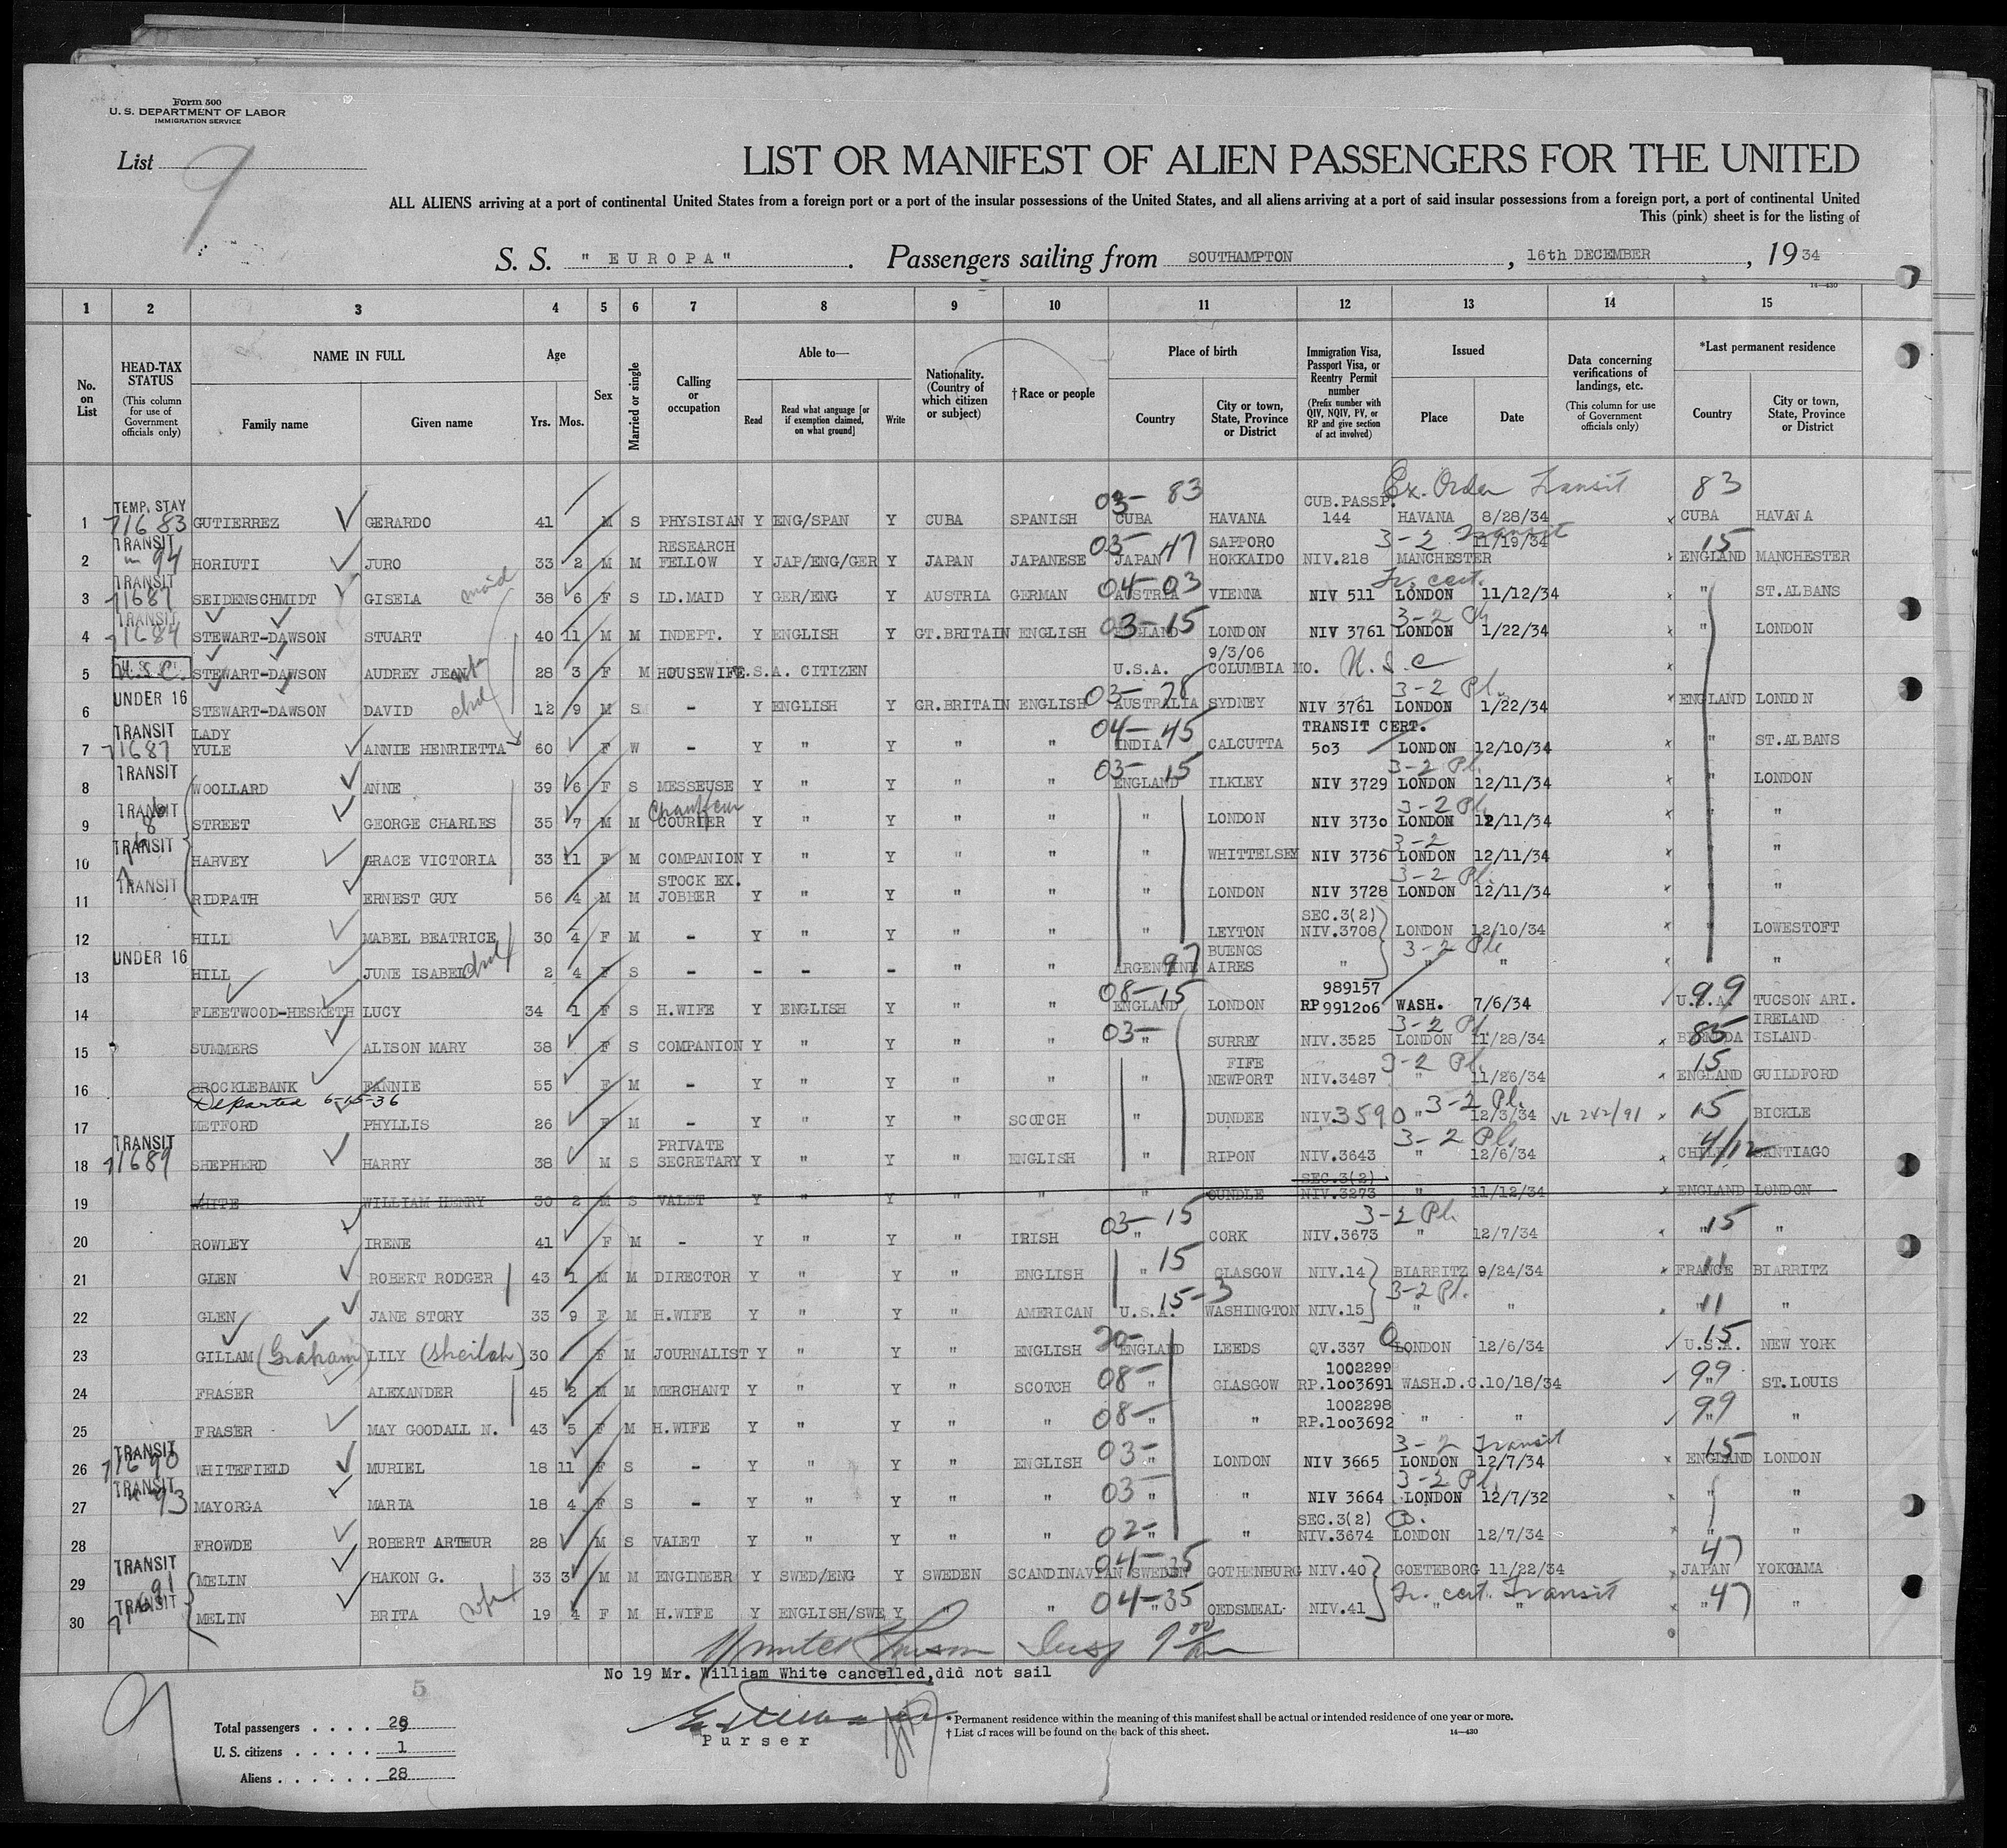 Form 500
U. S. DEPARTMENT OF LABOR
IMMIGRATION SERVICE
List 9
LIST OR MANIFEST OF ALIEN PASSENGERS FOR THE UNITED
ALL ALIENS arriving at a port of continental United States from a foreign port or a port of the insular possessions of the United States, and all aliens arriving at a port of said insular possessions from a foreign port, a port of continental United
This (pink) sheet is for the listing of
S. S. "EUROPA". Passengers sailing from SOUTHAMPTON, 16th DECEMBER, 1934
14—430
1 2 3 4 5 6 7 8 9 10 11 12 13 14 15
No. on List
HEAD-TAX STATUS (This column for use of Government officials only)
NAME IN FULL
Family name Given name
Age
Yrs. Mos.
Sex
Married or single
Calling or occupation
Able to—
Read Read what language [or if exemption claimed, on what ground] Write
Nationality. (Country of which citizen or subject)
†Race or people
Place of birth
Country City or town, State, Province or District
Immigration Visa, Passport Visa, or Reentry Permit number (Prefix number with QIV, NQIV, PV, or RP and give section of act involved)
Issued
Place Date
Data concerning verifications of landings, etc. (This column for use of Government officials only)
*Last permanent residence
Country City or town, State, Province or District
Ex. Order Transit
1 TEMP. STAY GUTIERREZ GERARDO 41 M S PHYSISIAN Y ENG/SPAN Y CUBA SPANISH 03- 83 CUBA HAVANA CUB.PASSP. 144 HAVANA 8/28/34 x 83 CUBA HAVANA
2 TRANSIT 94 HORIUTI JURO 33 2 M M RESEARCH FELLOW Y JAP/ENG/GER Y JAPAN JAPANESE 03- 47 JAPAN SAPPORO HOKKAIDO NIV.218 3-2 Transit MANCHESTER 11/19/34 x 15 ENGLAND MANCHESTER
3 TRANSIT 71687 SEIDENSCHMIDT GISELA maid 38 6 F S LD.MAID Y GER/ENG Y AUSTRIA GERMAN 04-03 AUSTRIA VIENNA NIV 511 Tr. cert. LONDON 11/12/34 x " ST.ALBANS
4 TRANSIT 71684 STEWART-DAWSON STUART 40 11 M M INDEPT. Y ENGLISH Y GT.BRITAIN ENGLISH 03-15 ENGLAND LONDON NIV 3761 3-2 Pl. LONDON 1/22/34 x " LONDON
5 U.S.C. STEWART-DAWSON AUDREY JEAN wife 28 3 F M HOUSEWIFE U.S.A. CITIZEN U.S.A. 9/3/06 COLUMBIA MO. U.S.C x
6 UNDER 16 STEWART-DAWSON DAVID chd 12 9 M S - Y ENGLISH Y GR.BRITAIN ENGLISH 03-78 AUSTRALIA SYDNEY NIV 3761 3-2 Pl. LONDON 1/22/34 x ENGLAND LONDON
7 TRANSIT 71687 LADY YULE ANNIE HENRIETTA 60 F W - Y " Y " " 04-45 INDIA CALCUTTA TRANSIT CERT. 503 LONDON 12/10/34 x " ST.ALBANS
8 TRANSIT WOOLLARD ANNE 39 6 F S MESSEUSE Y " Y " " 03-15 ENGLAND ILKLEY NIV 3729 3-2 Pl. LONDON 12/11/34 x " LONDON
9 TRANSIT STREET GEORGE CHARLES 35 7 M M Chauffeur COURIER Y " Y " " " LONDON NIV 3730 3-2 Pl. LONDON 12/11/34 x " "
10 TRANSIT HARVEY GRACE VICTORIA 33 11 F M COMPANION Y " Y " " " WHITTELSEY NIV 3736 3-2 LONDON 12/11/34 x " "
11 TRANSIT RIDPATH ERNEST GUY 56 4 M M STOCK EX. JOBBER Y " Y " " " LONDON NIV 3728 3-2 Pl. LONDON 12/11/34 x " "
12 HILL MABEL BEATRICE 30 4 F M - Y " Y " " " LEYTON SEC.3(2) NIV.3708 LONDON 12/10/34 x " LOWESTOFT
13 UNDER 16 HILL JUNE ISABEL chd 2 4 F S - - - - " " 97 ARGENTINE BUENOS AIRES " 3-2 Pl. " " x " "
14 FLEETWOOD-HESKETH LUCY 34 1 F S H.WIFE Y ENGLISH Y " " 08-15 ENGLAND LONDON 989157 RP 991206 WASH. 7/6/34 99 U.S.A. TUCSON ARI.
15 SUMMERS ALISON MARY 38 F S COMPANION Y " Y " " 03- " SURREY NIV.3525 3-2 Pl. LONDON 11/28/34 x 85 BERMUDA IRELAND ISLAND
16 BROCKLEBANK FANNIE 55 F M - Y " Y " " " FIFE NEWPORT NIV.3487 3-2 Pl. " 11/26/34 x 15 ENGLAND GUILDFORD
Departed 6-15-36
17 METFORD PHYLLIS 26 F M - Y " Y " SCOTCH " DUNDEE NIV.3590 3-2 Pl. " 12/3/34 VL 242/91 x 15 BICKLE
18 TRANSIT 71689 SHEPHERD HARRY 38 M S PRIVATE SECRETARY Y " Y " ENGLISH " RIPON NIV.3643 3-2 Pl. " 12/6/34 x CHILE SANTIAGO
19 WHITE WILLIAM HENRY 30 2 M S VALET Y " Y " " " OUNDLE SEC.3(2) NIV.3273 " 11/12/34 x ENGLAND LONDON
20 ROWLEY IRENE 41 F M - Y " Y " IRISH 03-15 " CORK NIV.3673 3-2 Pl. " 12/7/34 x 15 " "
21 GLEN ROBERT RODGER 43 1 M M DIRECTOR Y " Y " ENGLISH 15 " GLASGOW NIV.14 BIARRITZ 9/24/34 x 11 FRANCE BIARRITZ
22 GLEN JANE STORY 33 9 F M H.WIFE Y " Y " AMERICAN 15-3 U.S.A. WASHINGTON NIV.15 3-2 Pl. " " 11 " "
23 GILLAM (Graham) LILY (Sheilah) 30 F M JOURNALIST Y " Y " ENGLISH 20- ENGLAND LEEDS QV.337 LONDON 12/6/34 15 U.S.A. NEW YORK
24 FRASER ALEXANDER 45 2 M M MERCHANT Y " Y " SCOTCH 08- " GLASGOW 1002299 RP.1003691 WASH.D.C. 10/18/34 99 " ST.LOUIS
25 FRASER MAY GOODALL N. 43 5 F M H.WIFE Y " Y " " 08- " " 1002298 RP.1003692 " " 99 " "
26 TRANSIT 71690 WHITEFIELD MURIEL 18 11 F S - Y " Y " ENGLISH 03- " LONDON NIV 3665 3-2 Transit LONDON 12/7/34 x 15 ENGLAND LONDON
27 TRANSIT 93 MAYORGA MARIA 18 4 F S - Y " Y " " 03 " " NIV 3664 3-2 Pl. LONDON 12/7/32 x " "
28 FROWDE ROBERT ARTHUR 28 M S VALET Y " Y " " 02- " " SEC.3(2) NIV.3674 LONDON 12/7/34 x " "
29 TRANSIT MELIN HAKON G. 33 3 M M ENGINEER Y SWED/ENG Y SWEDEN SCANDINAVIAN 04-35 SWEDEN GOTHENBURG NIV.40 GOETEBORG 11/22/34 x 47 JAPAN YOKOAMA
30 TRANSIT 71691 MELIN BRITA wife 19 4 F M H.WIFE Y ENGLISH/SWE Y " " 04-35 " OEDSMEAL. NIV.41 Tr. cert. Transit " " x " 47 "
No 19 Mr. William White cancelled, did not sail
5
9
Purser
Total passengers . . . . 29
U. S. citizens . . . . . 1
Aliens . . . . . . 28
* Permanent residence within the meaning of this manifest shall be actual or intended residence of one year or more.
† List of races will be found on the back of this sheet. 14—430